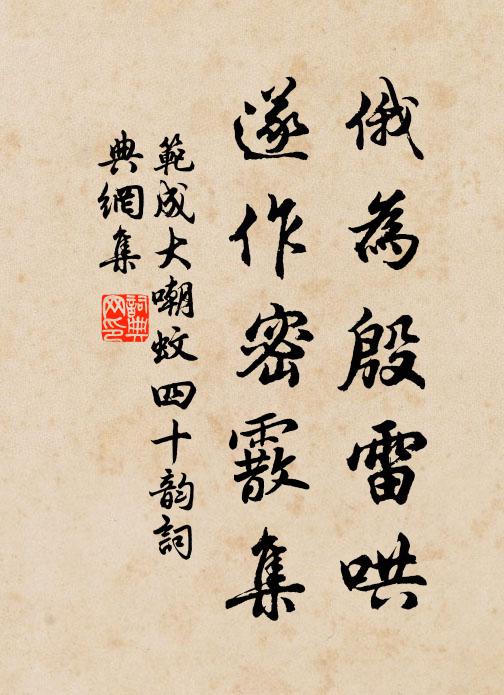 俄為殷雷哄
遂作密霰集
範成大嘲蚊四十韵詞
典網集
詞典網印